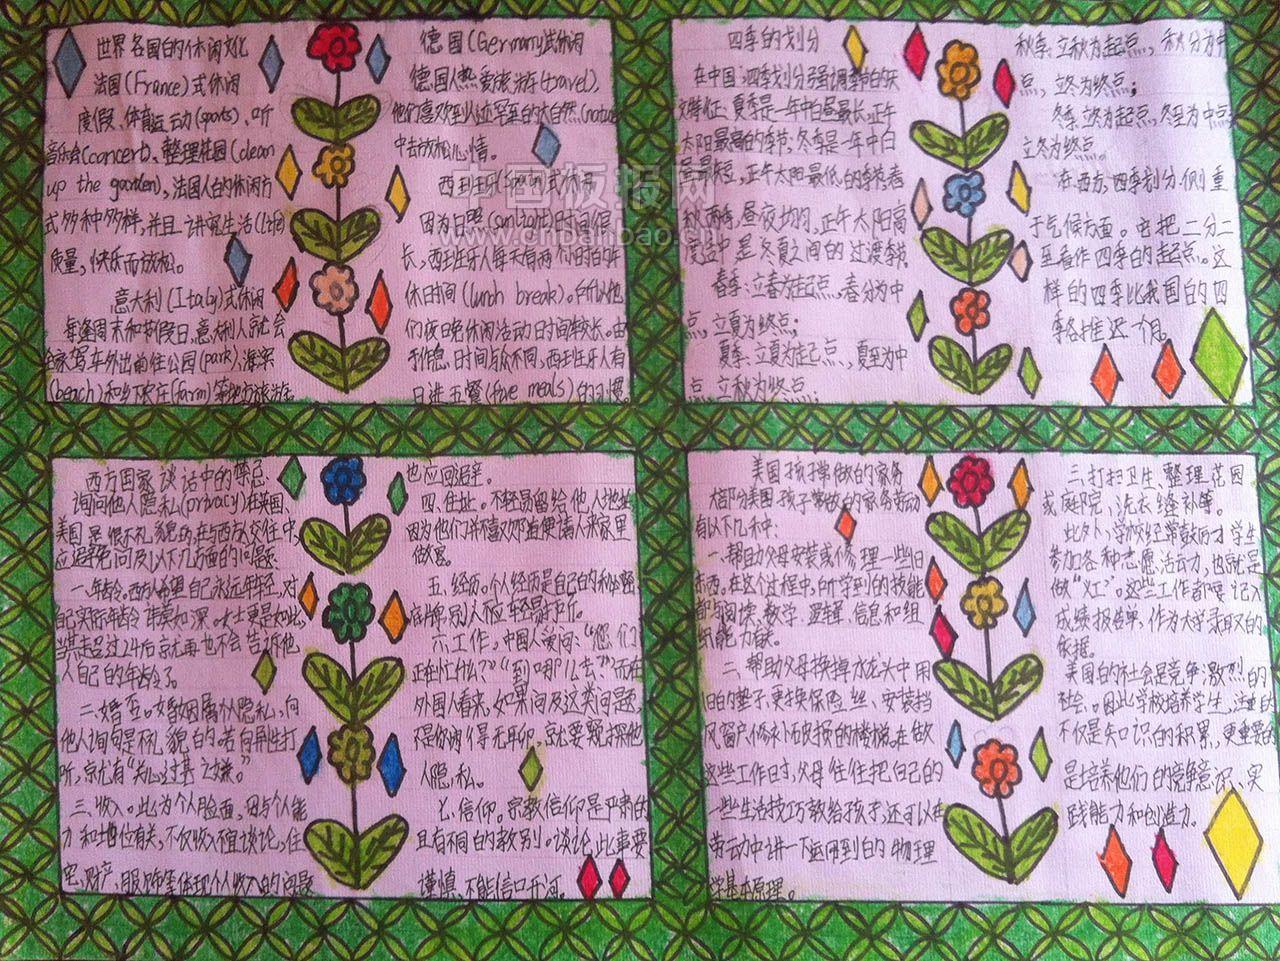 世界各国的休闲文化
法国(France)式休闲
度假、体育运动(sports)、听
音乐会(concert)、整理花园(clean
up the garden),法国人的休闲方
式多种多样,并且讲究生活(life)
质量,快乐而放松。
意大利(Italy)式休闲
每逢周末和节假日,意大利人就会
全家驾车外出前往公园(park)、海滨
(beach)和乡下农庄(farm)等地方旅游。
德国(Germany)式休闲
德国人热爱旅游(travel),
他们喜欢到人迹罕至的大自然(nature)
中去放松心情。
西班牙(Spain)式休闲
因为日照(sunlight)时间很
长,西班牙人每天有两个小时的午
休时间(lunch break)。所以他
们夜晚休闲活动时间较长。由
于作息时间与众不同,西班牙人有
日进五餐(five meals)的习惯。
四季的划分
在中国,四季划分强调季节的天
文特征,夏季是一年中白昼最长,正午
太阳最高的季节;冬季是一年中白
昼最短,正午太阳最低的季节;春
秋两季,昼夜均匀,正午太阳高
度适中是冬夏之间的过渡季节,
春季:立春为起点,春分为中
点,立夏为终点;
夏季:立夏为起点,夏至为中
点,立秋为终点;
秋季:立秋为起点,秋分为中
点,立冬为终点;
冬季:立冬为起点,冬至为中点
立冬为终点。
在西方,四季划分侧重
于气候方面。它把二分二
至看作四季的起点。这
样的四季比我国的四
季各推迟一个月。
西方国家谈话中的禁忌
询问他人隐私(privacy)在英国、
美国是很不礼貌的,在与西方人交往中,
应避免问及以下几方面的问题:
一、年龄。西方人希望自己永远年轻,对
自己实际年龄讳莫如深。女士更是如此,
当其超过24后就再也不会告诉他
人自己的年龄了。
二、婚否。婚姻属个人隐私,向
他人询问是不礼貌的。若向异性打
听,就有“关心过甚之嫌。”
三、收入。此为个人脸面,因与个人能
力和地位有关,不仅收入不宜谈论,住
宅、财产、服饰等体现个人收入的问题
也应回避。
四、住址。不轻易留给他人地址
因为他们并不喜欢随便请人来家里
做客。
五、经历。个人经历是自己的秘密
底牌,别人应轻易于听。
六、工作。中国人爱问:“您们
正在忙什么?”“到哪儿去?”而在
外国人看来,如果问及这类问题,
不是你闲得无聊,就要窥探他
人隐私。
七、信仰。宗教信仰是严肃的
且有不同的教别。谈论此事要
谨慎,不能信口开河。
美国孩子常做的家务
大部分美国孩子常做的家务劳动
有以下几种:
一、帮助父母安装或修理一些旧
东西。在这个过程中,所学到的技能
都与阅读、数学、逻辑、信息和组
织能力有关。
二、帮助父母换掉水龙头中用
旧的垫子、更换保险丝、安装挡
风窗户、修补破损的楼梯。在做
这些工作时,父母往往把自己的
一些生活技巧教给孩子,还可以在
劳动中讲一下运用到的物理
学基本原理。
三、打扫卫生、整理花园
或庭院、洗衣缝补等。
此外,学校经常鼓励学生
参加各种志愿活动,也就是
做“义工”。这些工作都要记入
成绩报告单,作为大学录取的
依据。
美国的社会是竞争激烈的
社会。因此学校培养学生,注重的
不仅是知识的积累,更重要的
是培养他们的竞争意识、实
践能力和创造力。
中国板报网
www.cnbanbao.cn